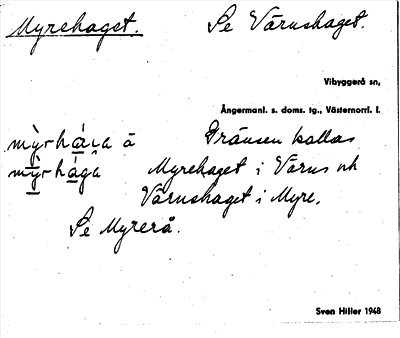 Myrehaget. Se Värnshaget.
Vibyggerå sn,
Ångermanl. s. doms. tg., Västernorrl. l.
å Gränsen kallas
Myrehaget i Värns och
Värnshaget i Myre.
Se Myrerå.
Sven Hiller 1948